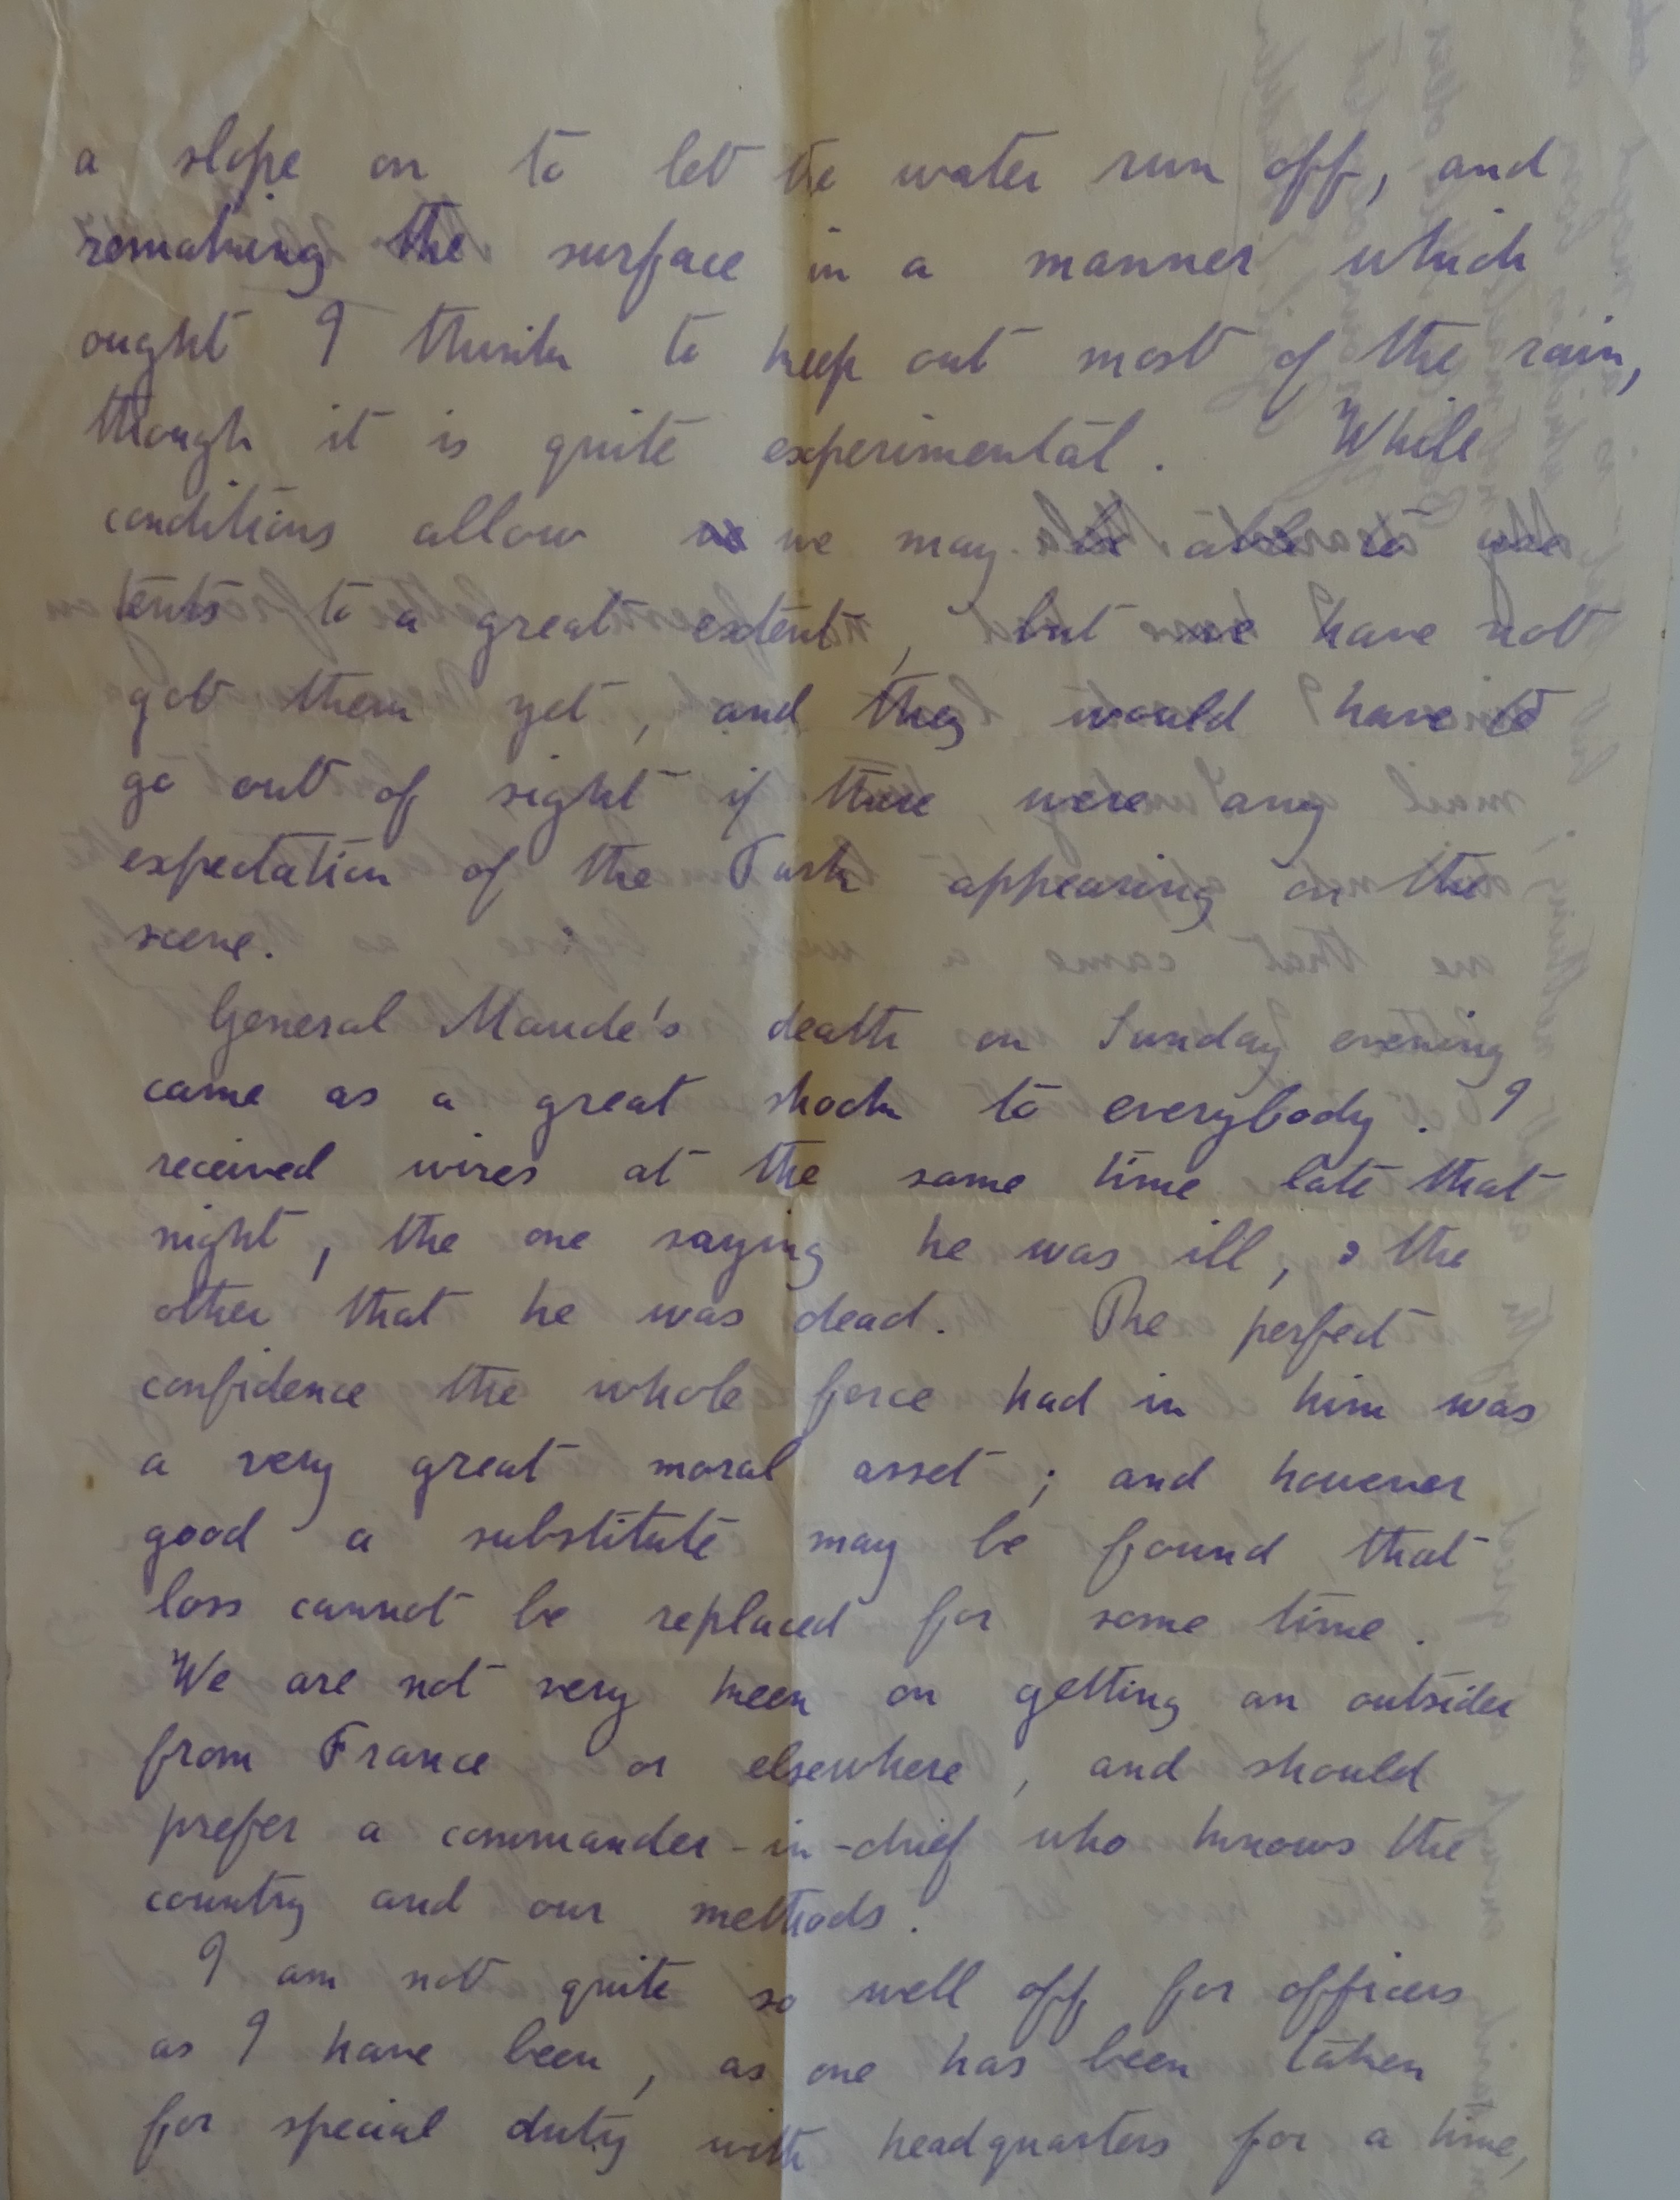 a slope on to let the water run off, and
remaking the surface in a manner which
ought I think to keep out most of the rain,
though it is quite experimental. While
conditions allow we may be able to use
tents to a great extent, but we have not
got them yet, and they would have to
go out of sight if there were any
expectation of the Turk appearing on the
scene.
General Maude's death on Sunday evening
came as a great shock to everybody. I
received wires at the same time late that
night, the one saying he was ill, & the
other that he was dead. The perfect
confidence the whole force had in him was
a very great moral asset; and however
good a substitute may be found that
loss cannot be replaced for some time.
We are not very keen on getting an outsider
from France or elsewhere, and should
prefer a commander-in-chief who knows the
country and our methods.
I am not quite so well off for officers
as I have been, as one has been taken
for special duty with headquarters for a time,